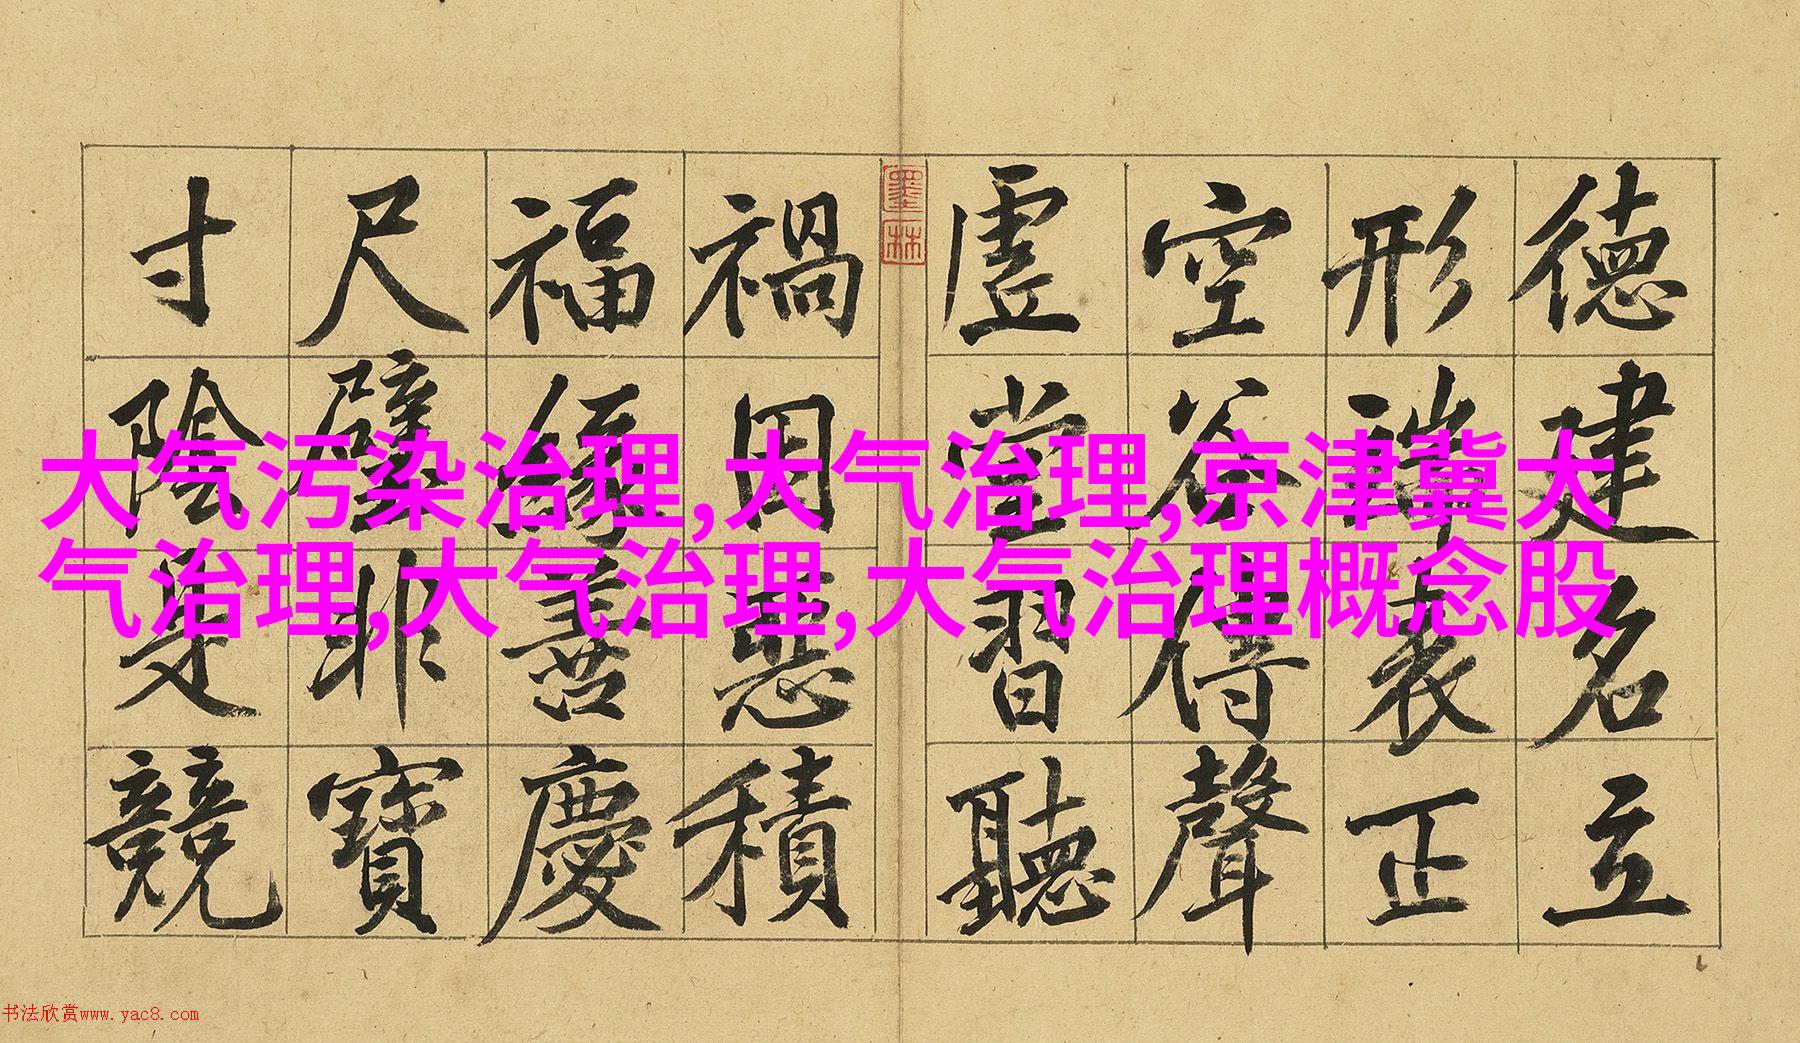 德建名立
形端表正
空谷傳聲
虛堂習聽
禍因惡積
福緣善慶
尺璧非寶
寸陰是競
墨林
大气污染治理,大气治理,京津冀大
气治理,大气治理,大气治理概念股
书法欣赏www.yac8.com